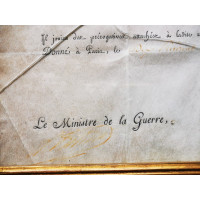 Il jouira des prérogatives attachées à ladite
Donné à Paris, le
Le Ministre de la Guerre,